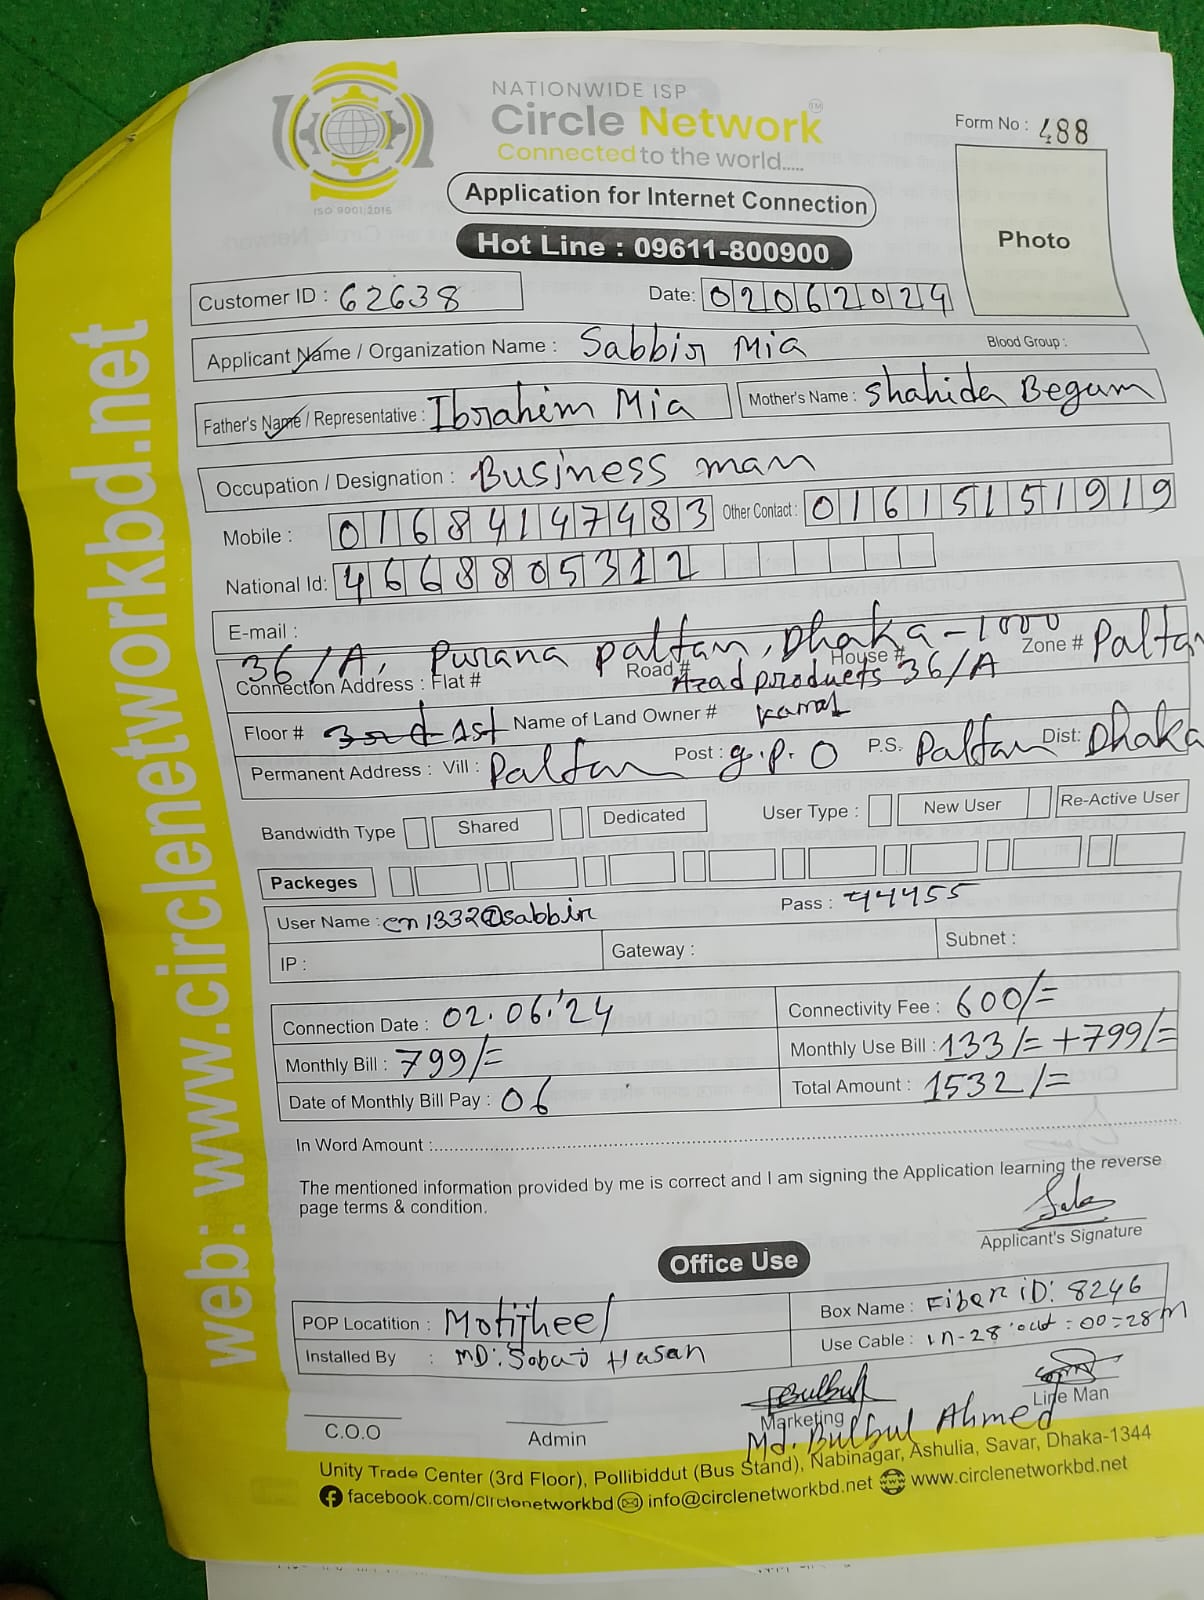 NATIONWIDE ISP
Circle Network™
Connected to the world.....
ISO 9001:2015
Form No : 488
Application for Internet Connection
Photo
Hot Line : 09611-800900
Customer ID : 62638
Date: 02062024
Applicant Name / Organization Name : Sabbir Mia Blood Group :
Father's Name / Representative : Ibrahim Mia Mother's Name : Shahida Begum
Occupation / Designation : Business man
Mobile : 01684147483 Other Contact : 01615151919
National Id: 4668805312
E-mail :
36/A, Purana paltan, Dhaka-1000 Zone # Paltan
Connection Address : Flat # Road # House #
Azad products 36/A
Floor # 3rd 1st Name of Land Owner # Kamal
Permanent Address : Vill : Paltan Post : g.p.O P.S. Paltan Dist: Dhaka
Bandwidth Type Shared Dedicated User Type : New User Re-Active User
Packeges
User Name : cn1332@sabbir Pass : 44455
IP : Gateway : Subnet :
Connection Date : 02.06.'24 Connectivity Fee : 600/=
Monthly Bill : 799/= Monthly Use Bill : 133/= +799/=
Date of Monthly Bill Pay : 06 Total Amount : 1532/=
In Word Amount :
The mentioned information provided by me is correct and I am signing the Application learning the reverse
page terms & condition.
Applicant's Signature
Office Use
POP Locatition : Motijheel Box Name : Fiber iD: 8246
Installed By : MD: Sobuj Hasan Use Cable : in-28 out : 00=28m
Bulbul
C.O.O Admin Marketing Line Man
Md. Bulbul Ahmed
Unity Trade Center (3rd Floor), Pollibiddut (Bus Stand), Nabinagar, Ashulia, Savar, Dhaka-1344
facebook.com/circlenetworkbd info@circlenetworkbd.net www.circlenetworkbd.net
web: www.circlenetworkbd.net